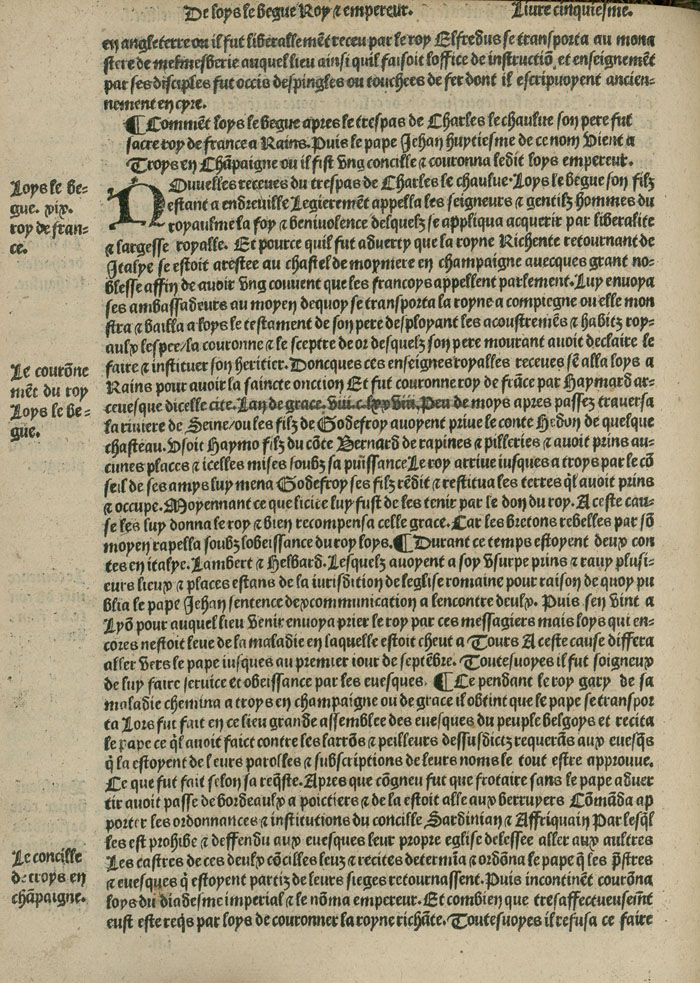 De loys le begue Roy ⁊ empereur. Livre cinquiesme.
en angleterre ou il fut liberallemēt receu par le roy Elfredus se transporta au mona
stere de mesmesberie auquel lieu ainsi quil faisoit loffice de instructiō, et enseignemēt
par ses disciples fut occis despingles ou touchees de fer dont il escripuoyent ancien-
nement en cyre.
¶Commēt loys le begue apres le trespas de Charles le chaulue son pere fut
sacre roy de france a Rains. Puis le pape Jehan huytiesme de ce nom vient a
Troys en Chāpaigne ou il fist vng concille ⁊ couronna ledit loys empereur.
Loys le be-
gue. xix.
roy de fran-
ce.
NOuvelles receues du trespas de Charles le chaulue. Loys le begue son filz
estant a endreuille Legierement appella les seigneurs ⁊ gentilz hommes du
royaulme la foy ⁊ benivolence desquelz se appliqua acquerir par liberalite
⁊ largesse royalle. Et pource quil fut aduerty que la royne Richente retournant de
Jtalye se estoit arestee au chastel de moyniere en champaigne avecques grant no-
blesse affin de avoir vng couuent que les francoys appellent parlement. Luy envoya
ses ambassadeurs au moyen dequoy se transporta la royne a compiegne ou elle mon
stra ⁊ bailla a loys le testament de son pere desployant les acoustremēs ⁊ habitz roy-
aulx lespee/la couronne ⁊ le sceptre de or desquelz son pere mourant avoit declaire le
faire ⁊ instituer son heritier. Doncques ces enseignes royalles receues sē alla loys a
Le courōne
mēt du roy
Loys le be-
gue.
Rains pour avoir la saincte onction Et fut couronne roy de frāce par Haymard ar-
cevesque dicelle cite. Lan de grace. viii. c. lxxviii. Peu de moys apres passez traversa
la riviere de Seine/ou les filz de Godefroy avoyent prive le conte Hedon de quelque
chasteau. Vsoit Haymo filz du cōte Bernard de rapines ⁊ pilleries ⁊ avoit prins au-
cunes places ⁊ icelles mises soubz sa puissance Le roy arrive iusques a troys par le cō
seil de ses amys luy mena Godefroy ses filz rēdit ⁊ restitua les terres ql avoit prins
⁊ occupe. Moyennant ce que licite luy fust de les tenir par le don du roy. A ceste cau-
se les luy donna le roy ⁊ bien recompensa celle grace. Car les bretons rebelles par sō
moyen rapella soubz lobeissance du roy loys. ¶Durant ce temps estoyent deux con
tes en italye. Lambert ⁊ Helbard. Lesquelz avoyent a soy vsurpe prins ⁊ ravy plusi-
eurs lieux ⁊ places estans de la iurisdition de leglise romaine pour raison de quoy pu
blia le pape Jehan sentence dexcommunication a lencontre deulx. Puis sen vint a
Lyō pour auquel lieu venir envoya prier le roy par ces messagiers mais loys qui en-
cores nestoit leve de la maladie en laquelle estoit cheut a Tours A ceste cause differa
aller vers le pape iusques au premier iour de septēbre. Toutesvoyes il fut soigneux
de luy faire service et obeissance par les euesques. ¶Ce pendant le roy gary de sa
maladie chemina a troys en champaigne ou de grace il obtint que le pape se transpor
ta Lors fut fait en ce lieu grande assemblee des evesques du peuple belgoys et recita
le pape ce ql avoit faict contre les larrōs ⁊ peilleurs dessusdictz requerās aux evesqs
q̄ la estoyent de leurs parolles ⁊ subscriptions de leurs noms le tout estre approuve.
Ce que fut fait selon sa reqste. Apres que cōgneu fut que frotaire sans le pape adver
tir avoit passe de bordeaulx a poictiers ⁊ de la estoit alle aux berruyers Cōmāda ap
porter les ordonnances ⁊ institutions du concille Sardinian ⁊ Affriquain Par lesql
les est prohibe ⁊ deffendu aux evesques leur propre eglise delessee aller aux aultres
Le concille
de troys en
chāpaigne.
Les castres de ces deulx cōcilles leuz ⁊ recites determīa ⁊ ordōna le pape q̄ les p̄stres
⁊ evesques q̄ estoyent partiz de leurs sieges retournassent. Puis incontinēt courōna
loys du diadesme imperial ⁊ le nōma empereur. Et combien que tresaffectueusemēt
eust este reqs par loys de couronner la royne richāte. Toutesvoyes il refusa ce faire